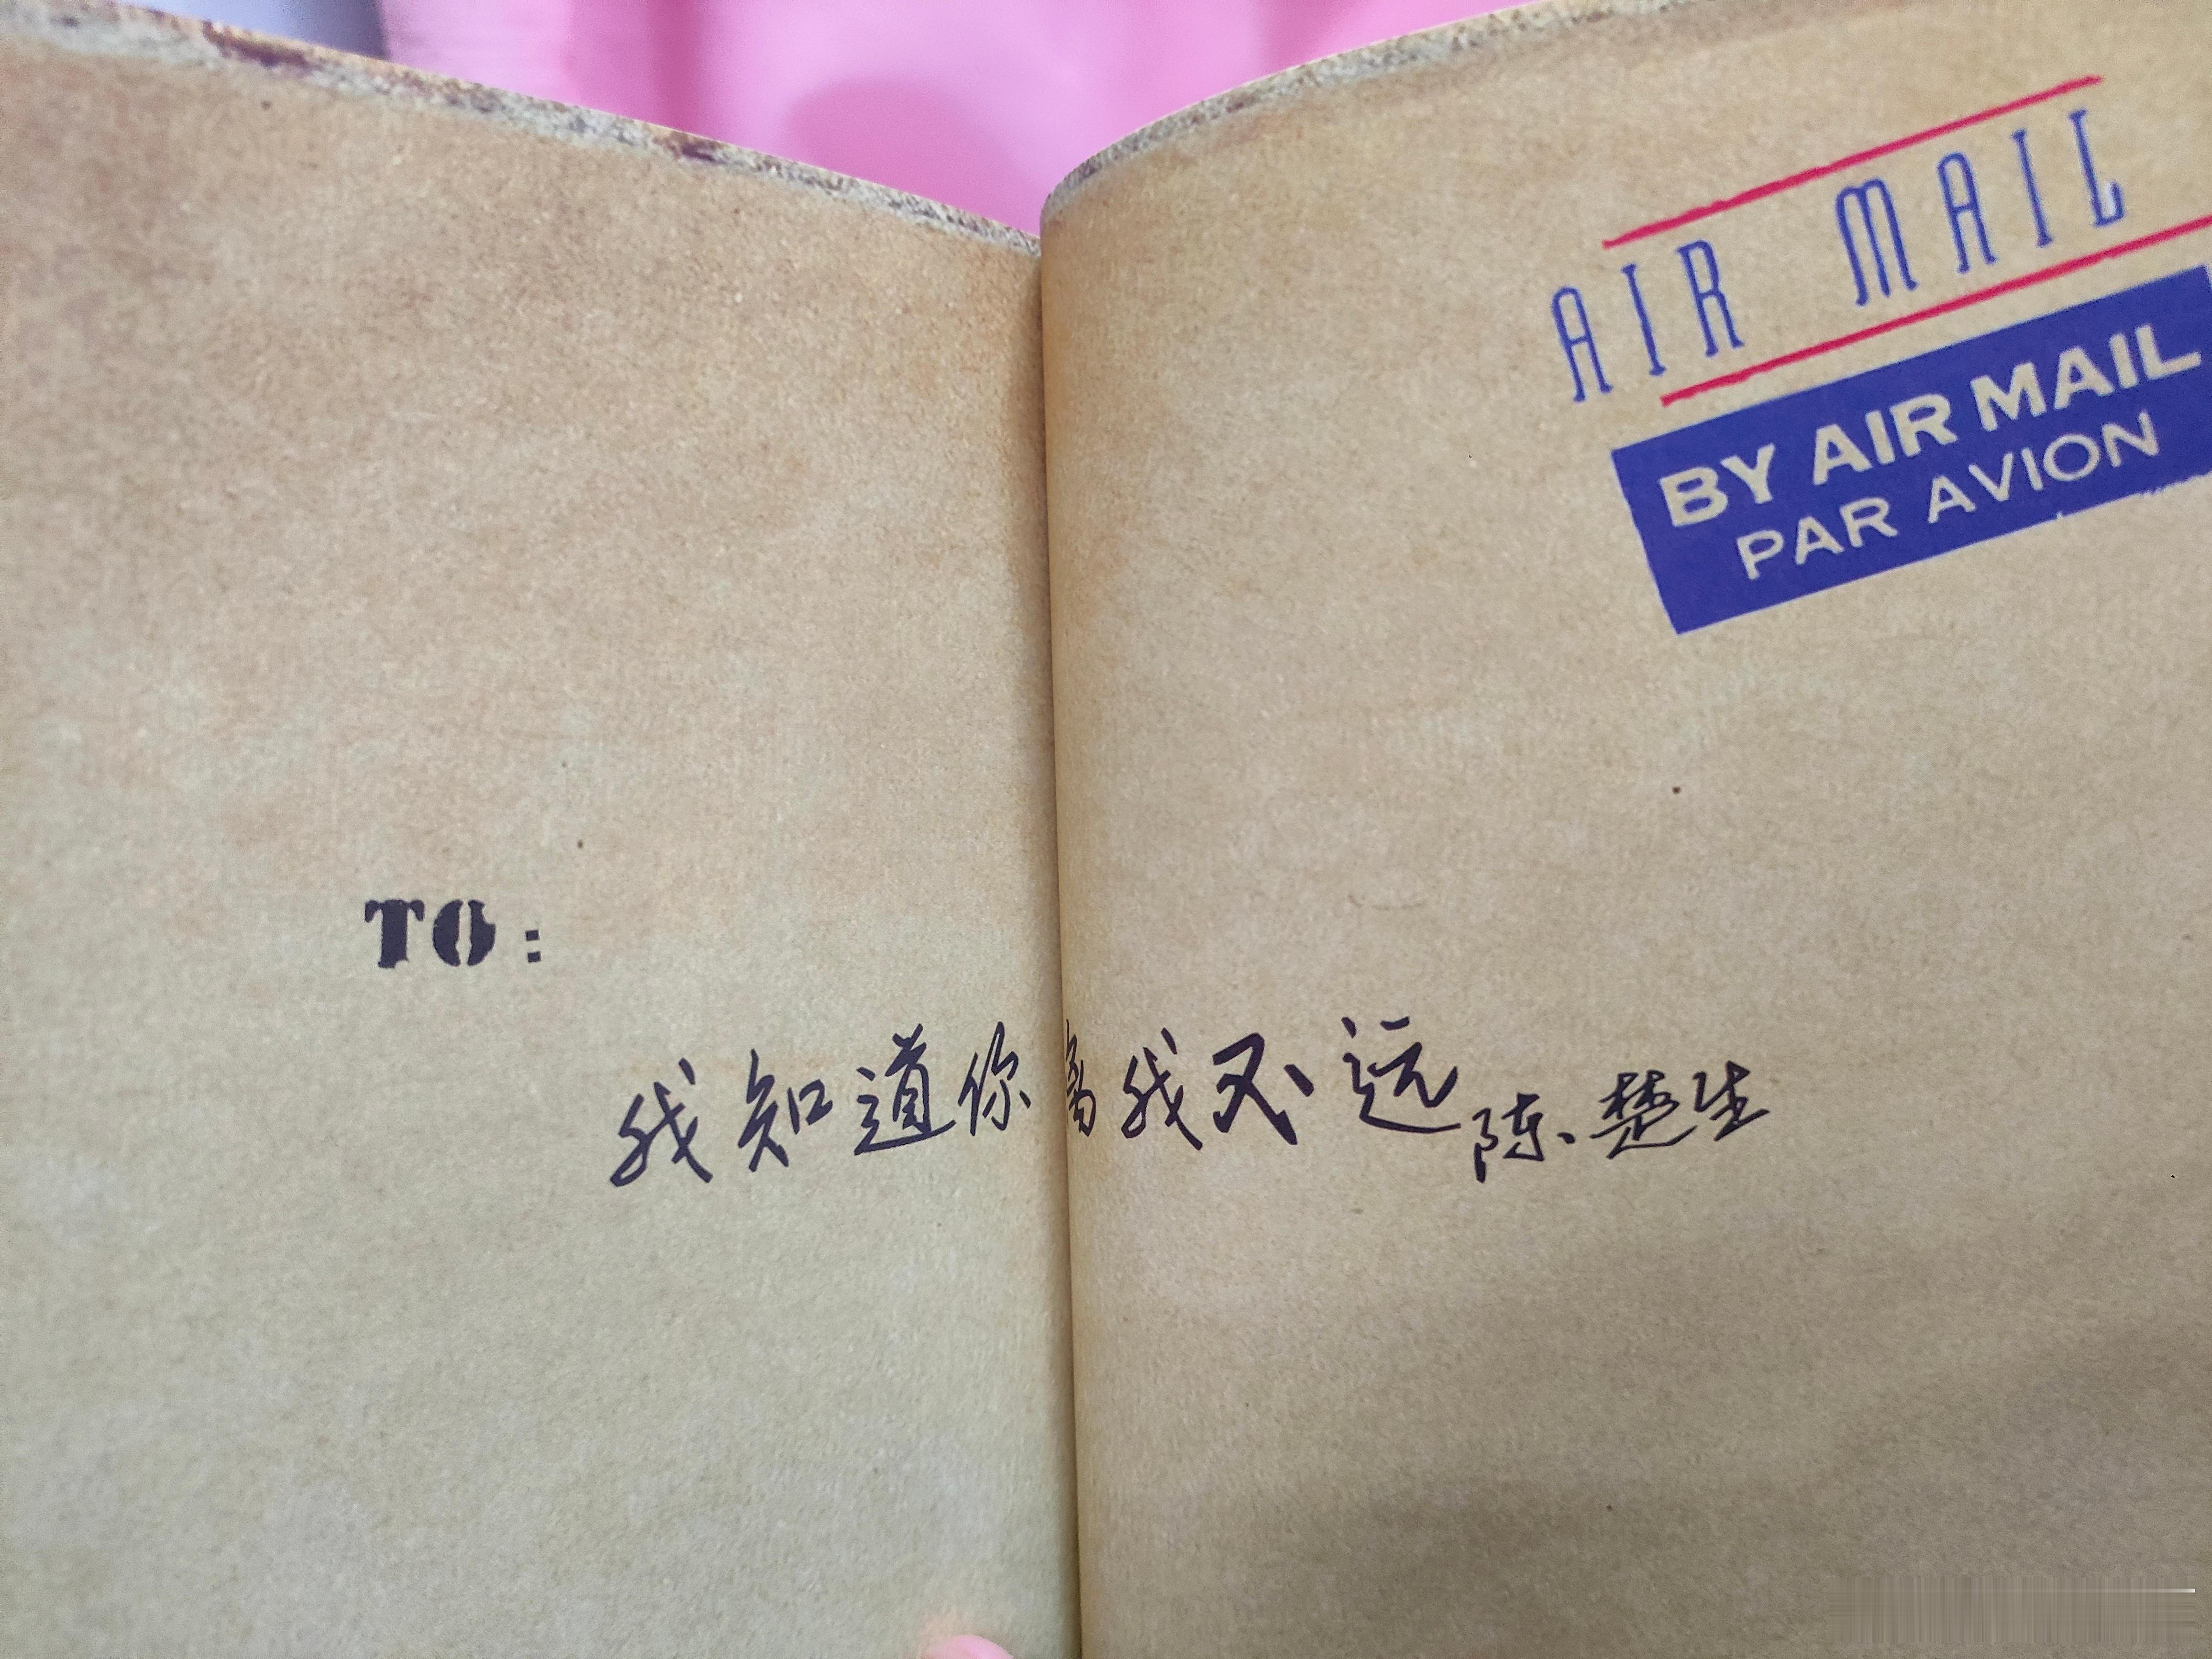 AIR MAIL
BY AIR MAIL
PAR AVION
TO:
我知道你离我不远 陈楚生